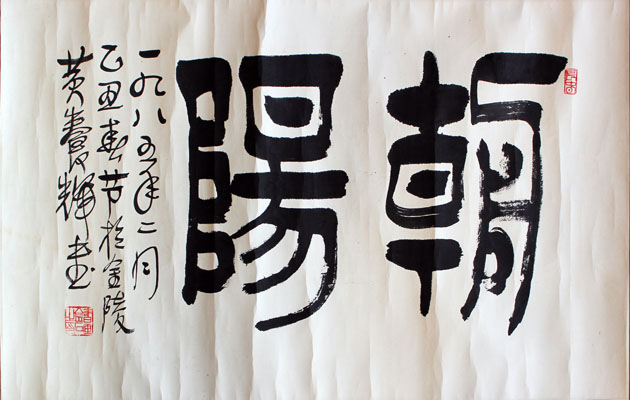 朝陽
一九八五年二月
乙丑春节於金陵
黄養輝书